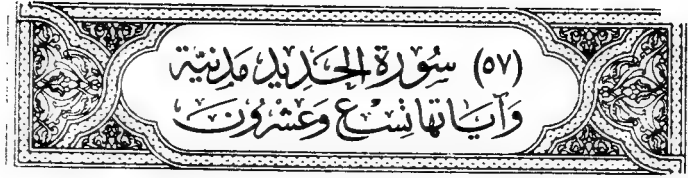 (٥٧) سُورَة الحَديد مَدنيَّة
وَآيَاتهَا تِسْع وَعشرُونَ